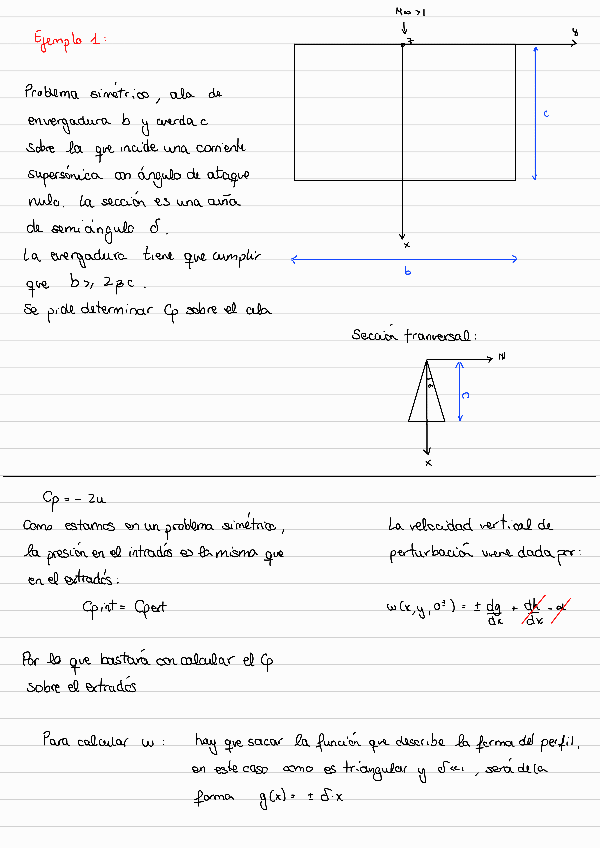 Ejemplo 1:
M∞ >1
z
y
Problema simétrico, ala de
envergadura b y cuerda c
sobre la que incide una corriente
supersónica con ángulo de ataque
nulo. La sección es una cuña
de semiángulo δ.
La evergadura tiene que cumplir
que b ≥ 2βc.
Se pide determinar Cp sobre el ala
c
x
b
Sección tranversal:
z
δ
c
x
Cp = - 2u
Como estamos en un problema simétrico,
la presión en el intradós es la misma que
en el extradós:
Cp int = Cp ext
La velocidad vertical de
perturbación viene dada por:
w(x,y,0±) = ± dg/dx + dh/dx - α
Por lo que bastará con calcular el Cp
sobre el extradós
Para calcular w: hay que sacar la función que describe la forma del perfil,
en este caso como es triangular y δ<<1, será de la
forma g(x) = ± δ·x